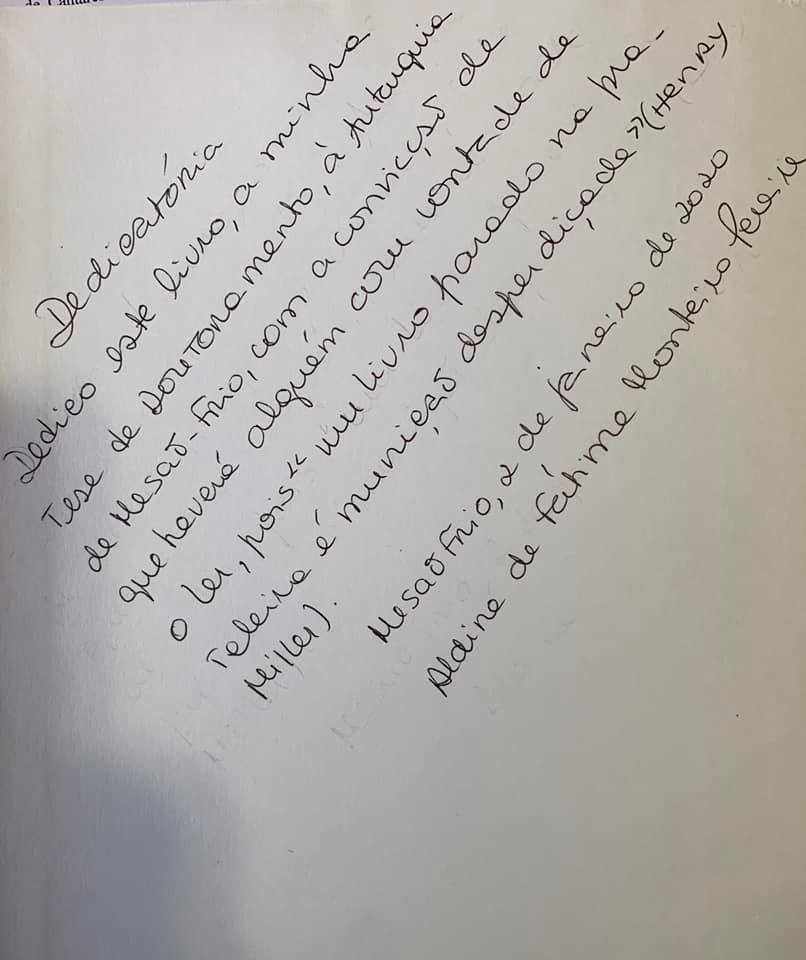 Dedicatória
Dedico este livro, a minha
Tese de Doutoramento, à Autarquia
de Mesão-Frio, com a convicção de
que haverá alguém com vontade de
o ler, pois « um livro parado na pra-
teleira é munição desperdiçada »(Henry
Miller).
Mesão Frio, 2 de janeiro de 2020
Aldina de Fátima Monteiro Pereira